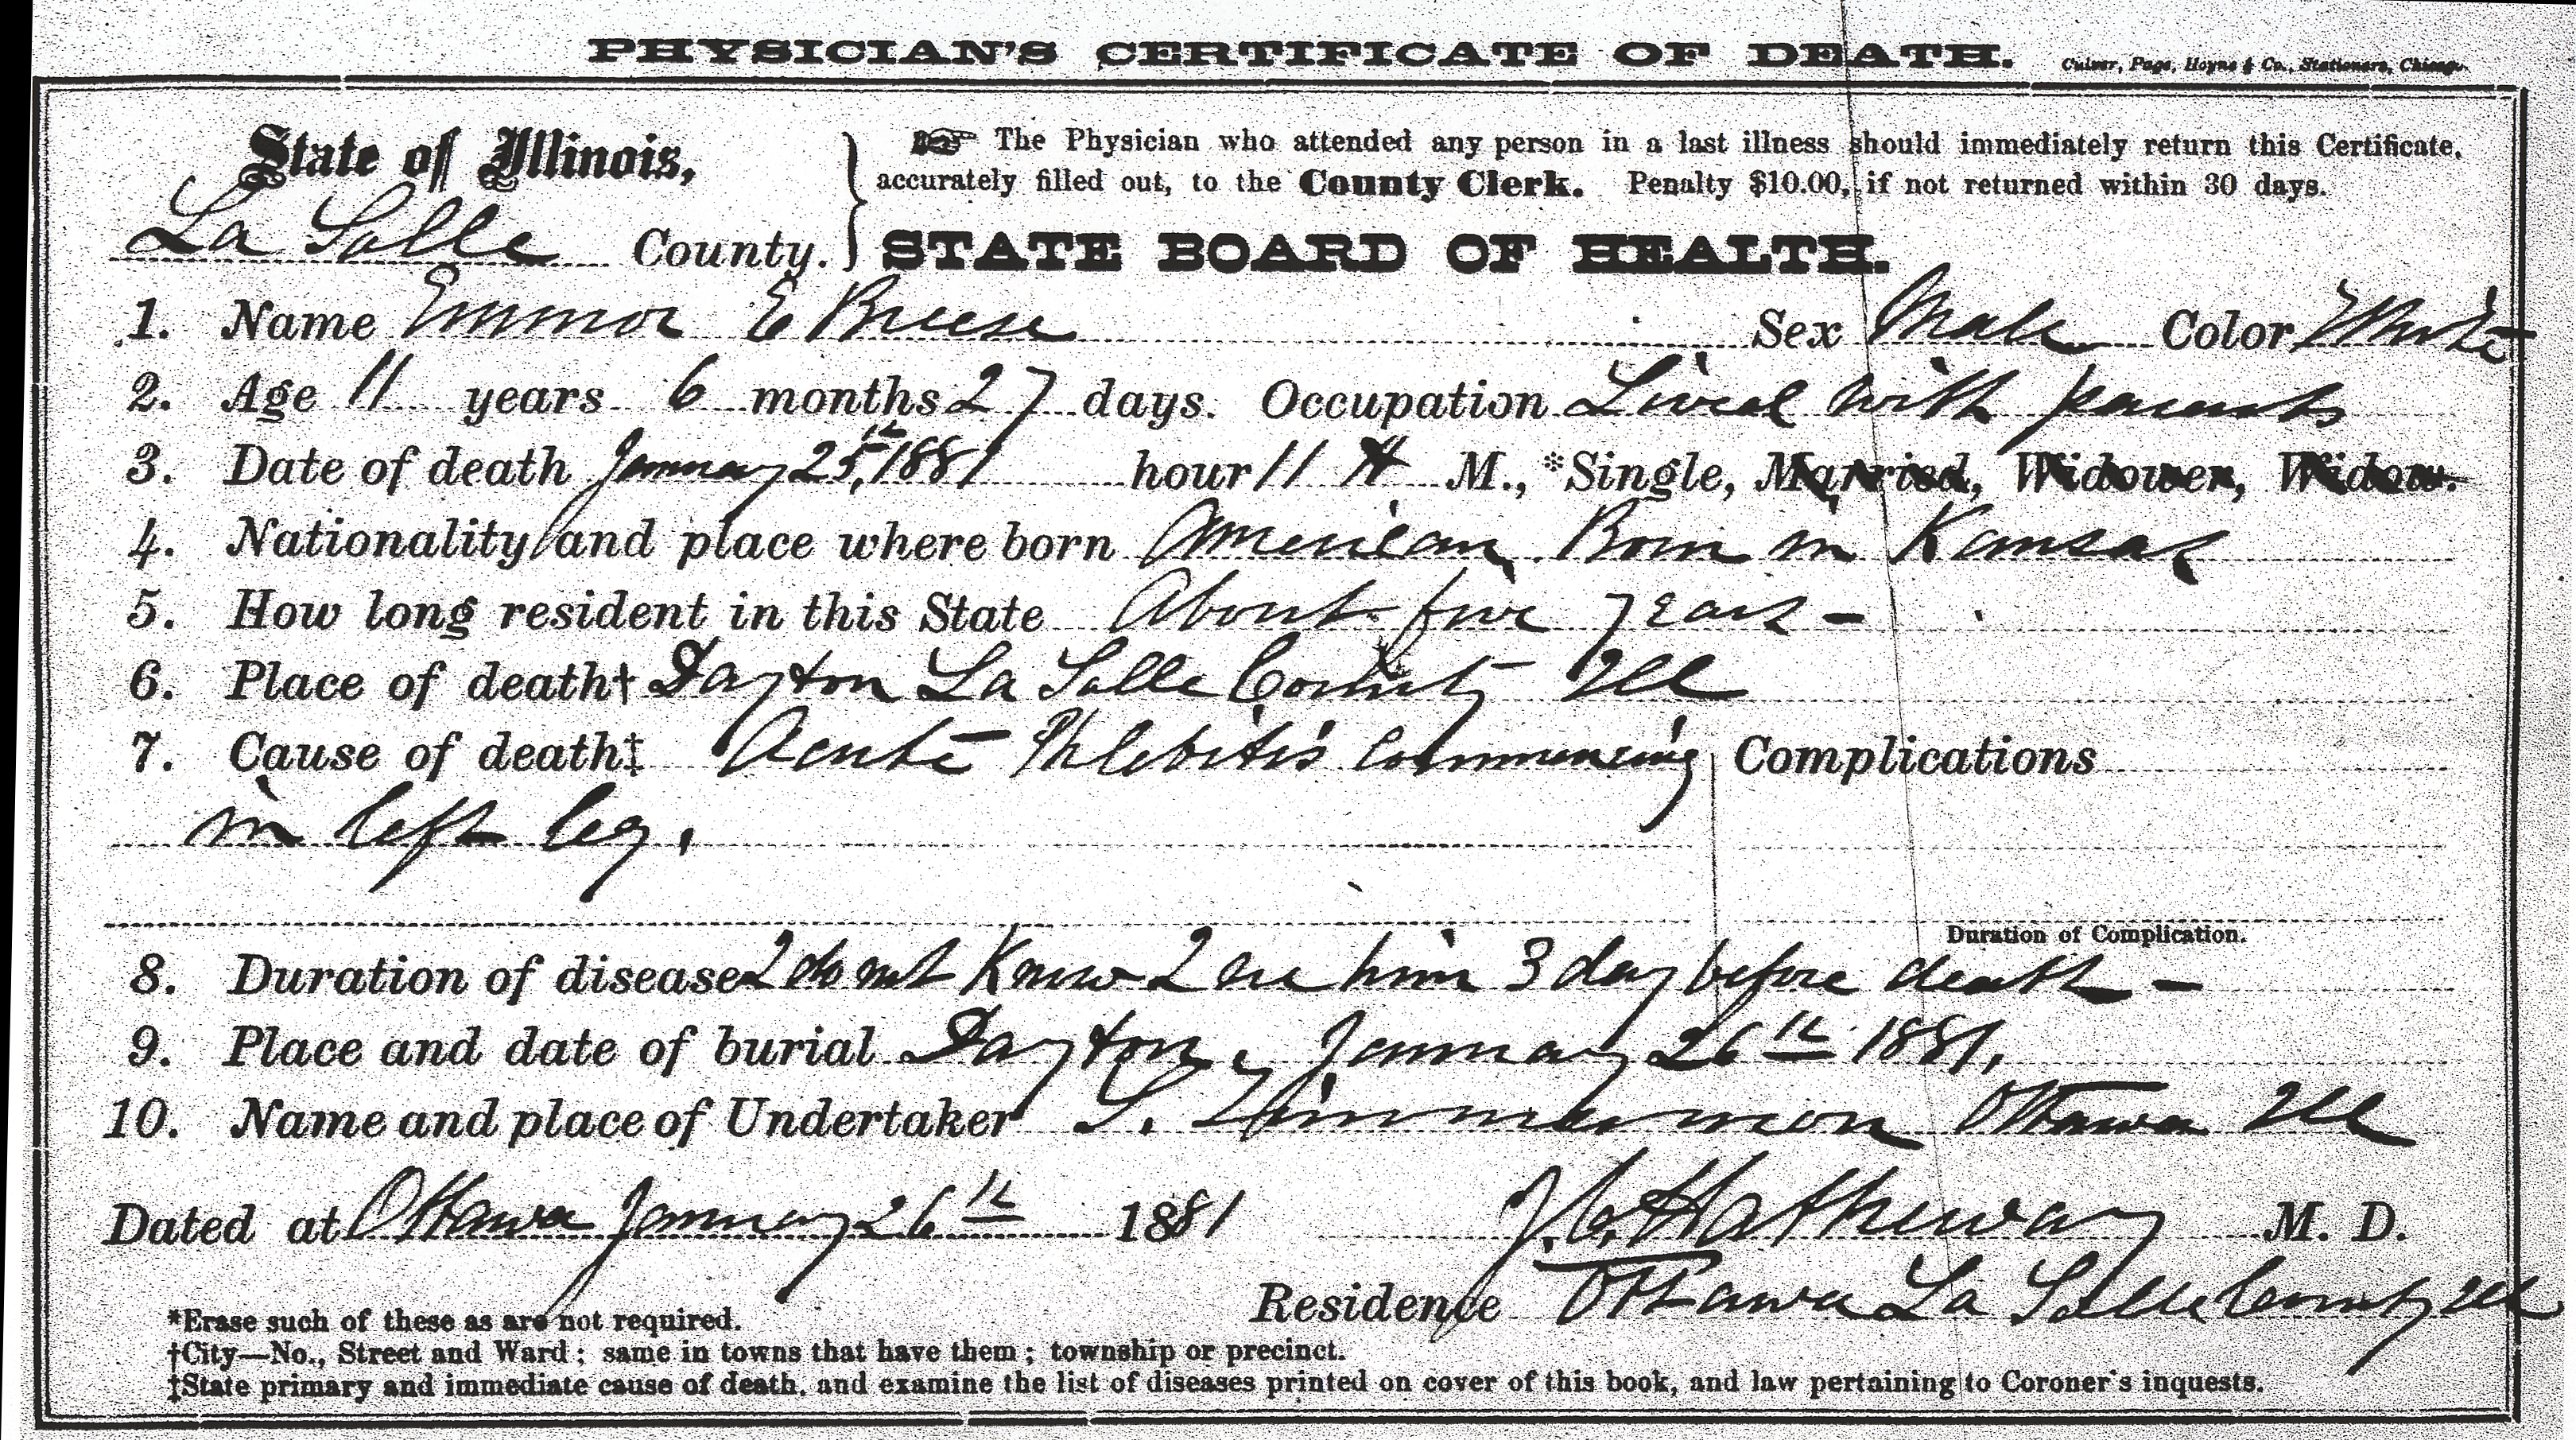 PHYSICIAN'S CERTIFICATE OF DEATH. Culver, Page, Hoyne & Co., Stationers, Chicago.
State of Illinois,
La Salle County.
The Physician who attended any person in a last illness should immediately return this Certificate,
accurately filled out, to the County Clerk. Penalty $10.00, if not returned within 30 days.
STATE BOARD OF HEALTH.
1. Name Emmor E Breese Sex Male Color White
2. Age 11 years 6 months 27 days. Occupation Lived with parents
3. Date of death January 25th, 1881 hour 11 A M., *Single, Married, Widower, Widow.
4. Nationality and place where born American. Born in Kansas
5. How long resident in this State About five years -
6. Place of death† Dayton La Salle County Ill
7. Cause of death‡ Acute Phlebitis commencing Complications
in left leg.
Duration of Complication.
8. Duration of disease I do not Know I see him 3 day before death -
9. Place and date of burial Dayton, January 26th 1881,
10. Name and place of Undertaker S. Zimmerman Ottawa Ill
Dated at Ottawa January 26th 1881 J. C. Hatheway M. D.
Residence Ottawa La Salle County Ill
*Erase such of these as are not required.
†City—No., Street and Ward; same in towns that have them; township or precinct.
‡State primary and immediate cause of death, and examine the list of diseases printed on cover of this book, and law pertaining to Coroner's inquests.